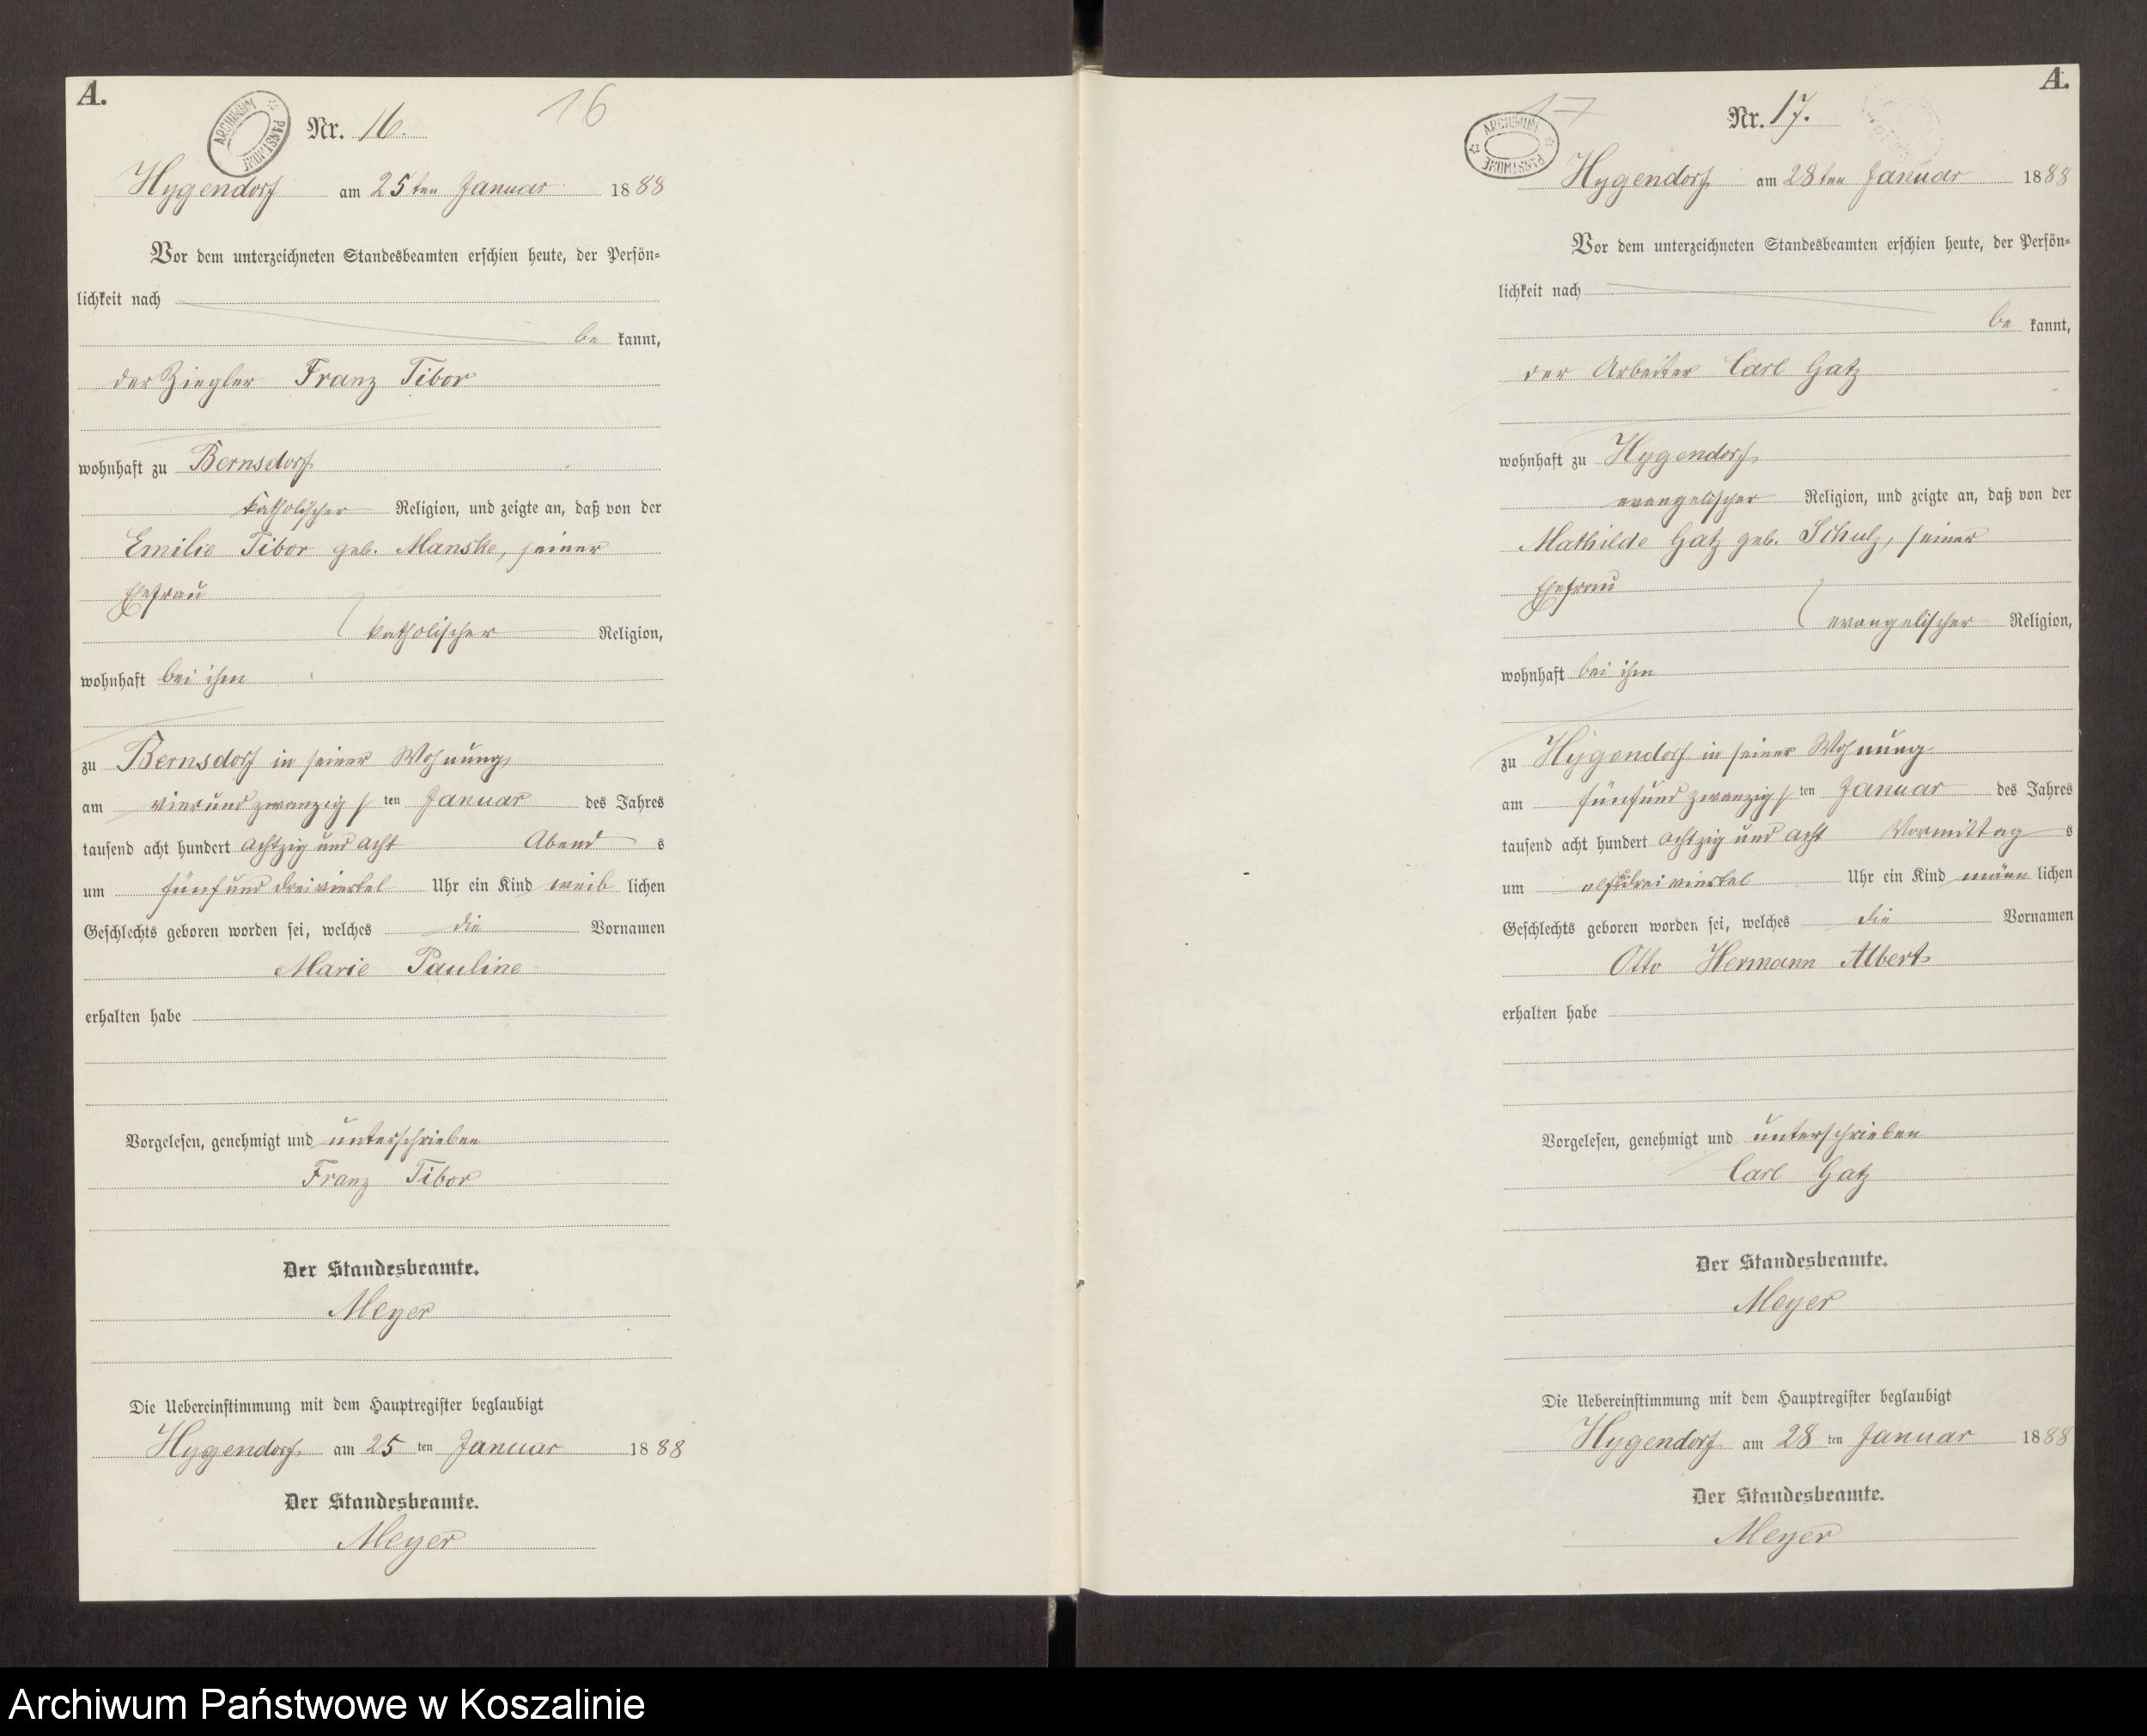 A.
Nr. 16.
16
ARCHIWUM PAŃSTWOWE
Hygendorf am 25ten Januar 1888
Vor dem unterzeichneten Standesbeamten erschien heute, der Persön-
lichkeit nach
be kannt,
der Ziegler Franz Tibor
wohnhaft zu Bernsdorf
katholischer Religion, und zeigte an, daß von der
Emilie Tibor geb. Manske, seiner
Ehefrau
katholischer Religion,
wohnhaft bei ihm
zu Bernsdorf in seiner Wohnung
am vierundzwanzigsten Januar des Jahres
tausend acht hundert achtzig und acht Abend s
um fünf und dreiviertel Uhr ein Kind weib lichen
Geschlechts geboren worden sei, welches die Vornamen
Marie Pauline
erhalten habe
Vorgelesen, genehmigt und unterschrieben
Franz Tibor
Der Standesbeamte.
Meyer
Die Uebereinstimmung mit dem Hauptregister beglaubigt
Hygendorf am 25 ten Januar 1888
Der Standesbeamte.
Meyer
A.
17
Nr. 17.
ARCHIWUM PAŃSTWOWE
Hygendorf am 28ten Januar 1888
Vor dem unterzeichneten Standesbeamten erschien heute, der Persön-
lichkeit nach
be kannt,
der Arbeiter Carl Gatz
wohnhaft zu Hygendorf
evangelischer Religion, und zeigte an, daß von der
Mathilde Gatz geb. Schulz, seiner
Ehefrau
evangelischer Religion,
wohnhaft bei ihm
zu Hygendorf in seiner Wohnung
am fünfundzwanzigsten Januar des Jahres
tausend acht hundert achtzig und acht Vormittag s
um elf dreiviertel Uhr ein Kind männ lichen
Geschlechts geboren worden sei, welches die Vornamen
Otto Hermann Albert
erhalten habe
Vorgelesen, genehmigt und unterschrieben
Carl Gatz
Der Standesbeamte.
Meyer
Die Uebereinstimmung mit dem Hauptregister beglaubigt
Hygendorf am 28 ten Januar 1888
Der Standesbeamte.
Meyer
Archiwum Państwowe w Koszalinie